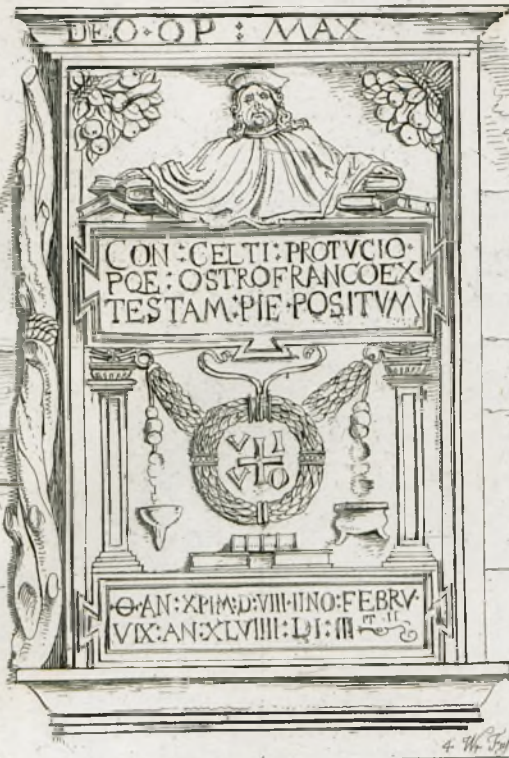 DEO·OP : MAX
CON : CELTI : PROTVCIO·
PQE : OSTROFRANCOEX
TESTAM : PIE·POSITVM
V I
V O
·O·AN : XPI M : D : VIII·IINO : FEBRV·
VIX : AN : XLVIIII : DI : III